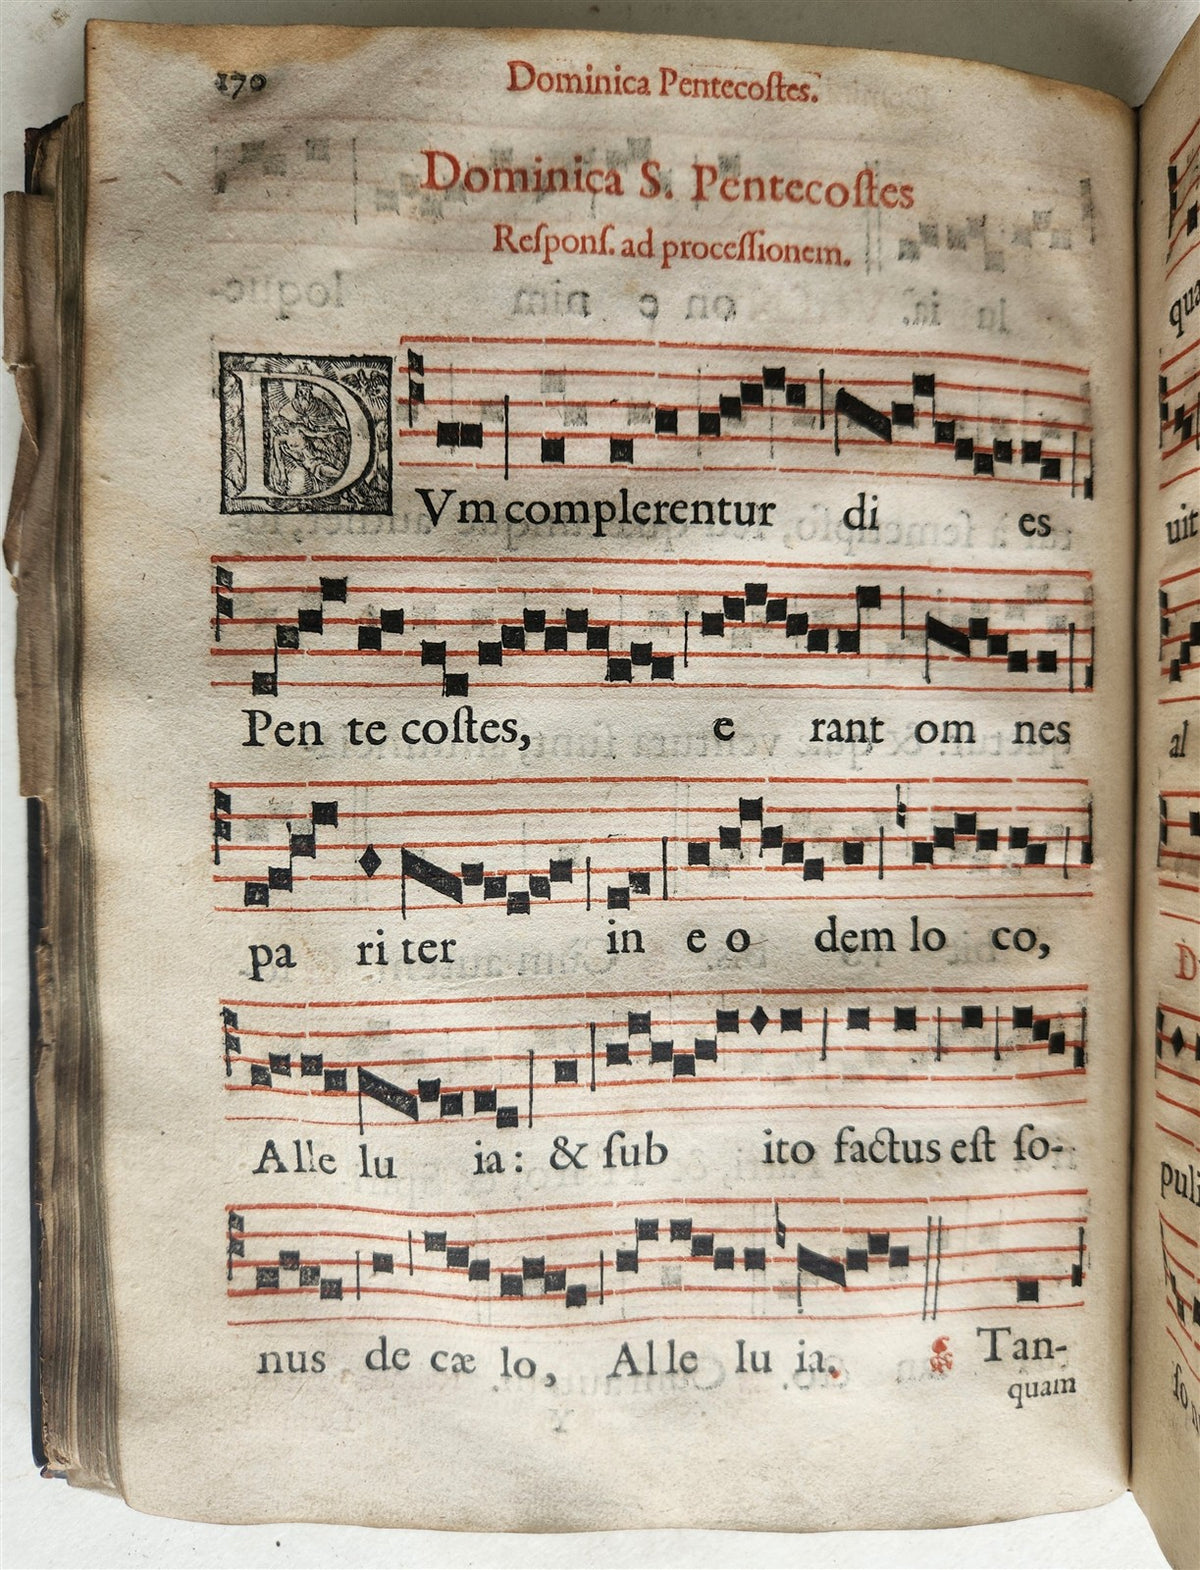 170
Dominica Pentecoſtes.
Dominica S. Pentecoſtes
Reſponſ. ad proceſſionem.
DVm complerentur di es
Pen te coſtes, e rant om nes
pa ri ter in e o dem lo co,
Alle lu ia: & ſub ito factus eſt ſo-
nus de cæ lo, Alle lu ia. Tan-
quam
uit
al